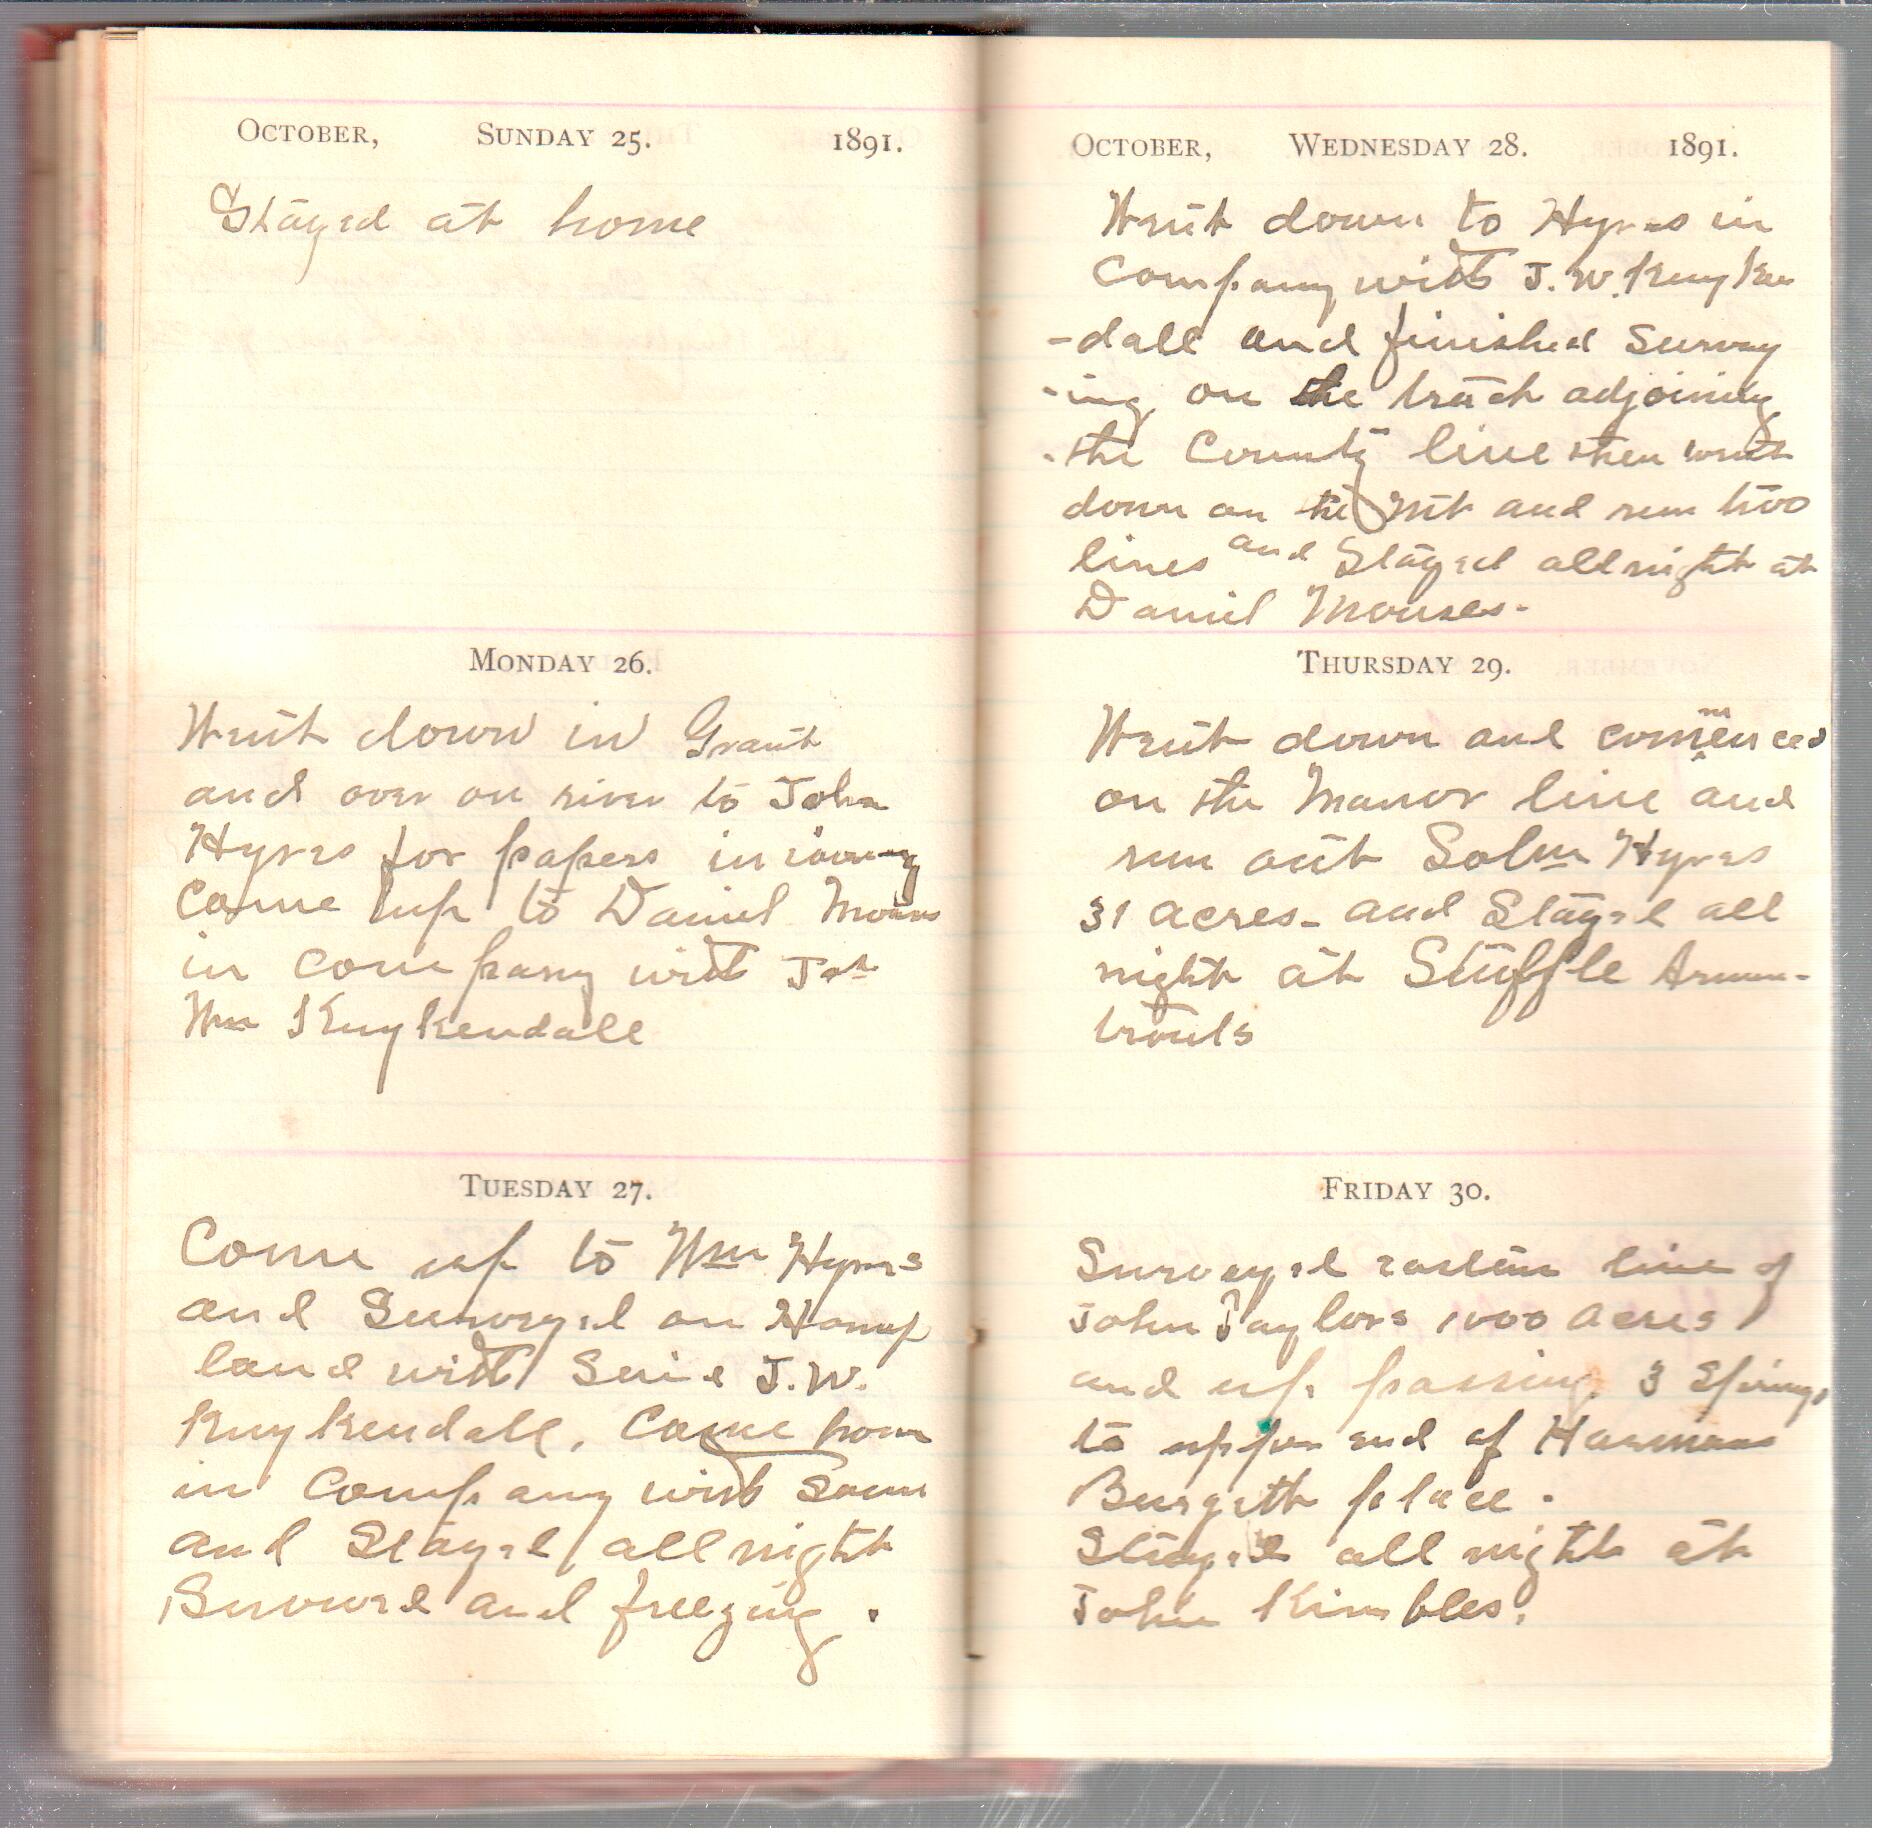 OCTOBER, SUNDAY 25. 1891.
Stayed at home
MONDAY 26.
Went down in Grant
and over on river to John
Hyres for papers in
Came up to Daniel
in company with
Wm Kuykendall
TUESDAY 27.
Come up to Wm Hyres
and Surveyed on
land with Said J.W.
Kuykendall. Come home
in Company with Same
and Stayed all night
Snowed and freezing.
OCTOBER, WEDNESDAY 28. 1891.
Went down to Hyres in
Company with J.W. Kuyken
-dall and finished Survey
-ing on the tract adjoining
the County line then went
down on the Mt and run two
lines and Stayed all night at
Daniel Mouses-
THURSDAY 29.
Went down and commenced
on the Manor line and
run out Solm Hyres
31 acres- and Stayed all
night at Stuffle Armen-
trouts
FRIDAY 30.
Surveyed eastern line of
John Taylors 1000 acres
and up passing 3 Springs
to upper end of Harmans
Burgett place.
Stayed all night at
John Kimbles.